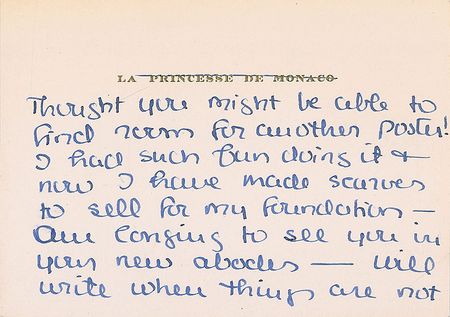 LA PRINCESSE DE MONACO
Thought you might be able to
find room for another poster!
I had such fun doing it +
now I have made scarves
to sell for my foundation —
Am longing to see you in
your new abodes — Will
write when things are not